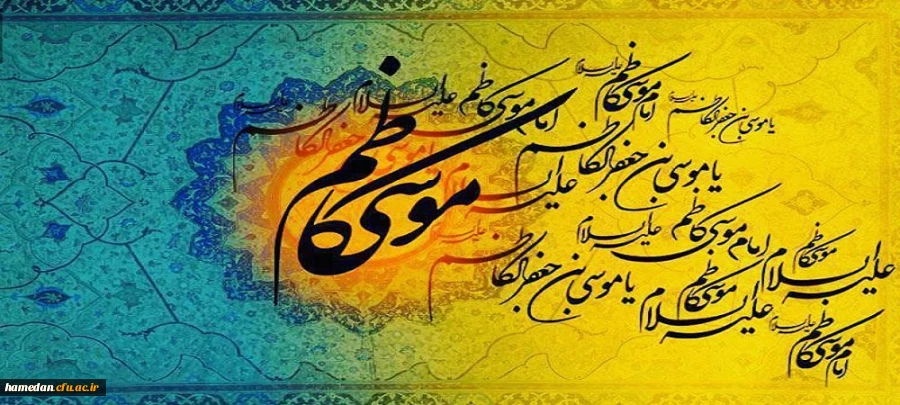 امام موسی کاظم
علیه السلام
یا موسی بن جعفر الکاظم
علیه السلام
امام موسی کاظم
علیه السلام
یا موسی بن جعفر الکاظم
موسی کاظم
علیه السلام
امام موسی کاظم
علیه السلام
موسی کاظم
علیه السلام
یا موسی بن جعفر الکاظم
موسی کاظم
علیه السلام
امام موسی کاظم
علیه السلام
hamedan.cfu.ac.ir